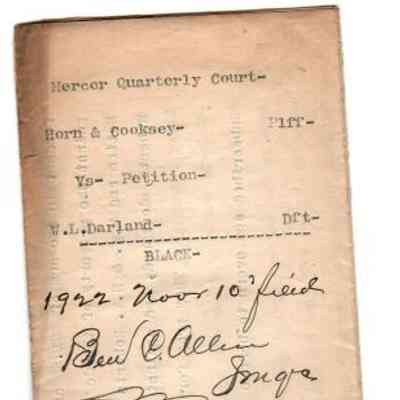 Mercer Quarterly Court-
Horn & Cooksey- Plff-
Vs- Petition-
W.L.Darland- Dft-
BLACK-
1922 Nov 10 filed
Ben C. Allin